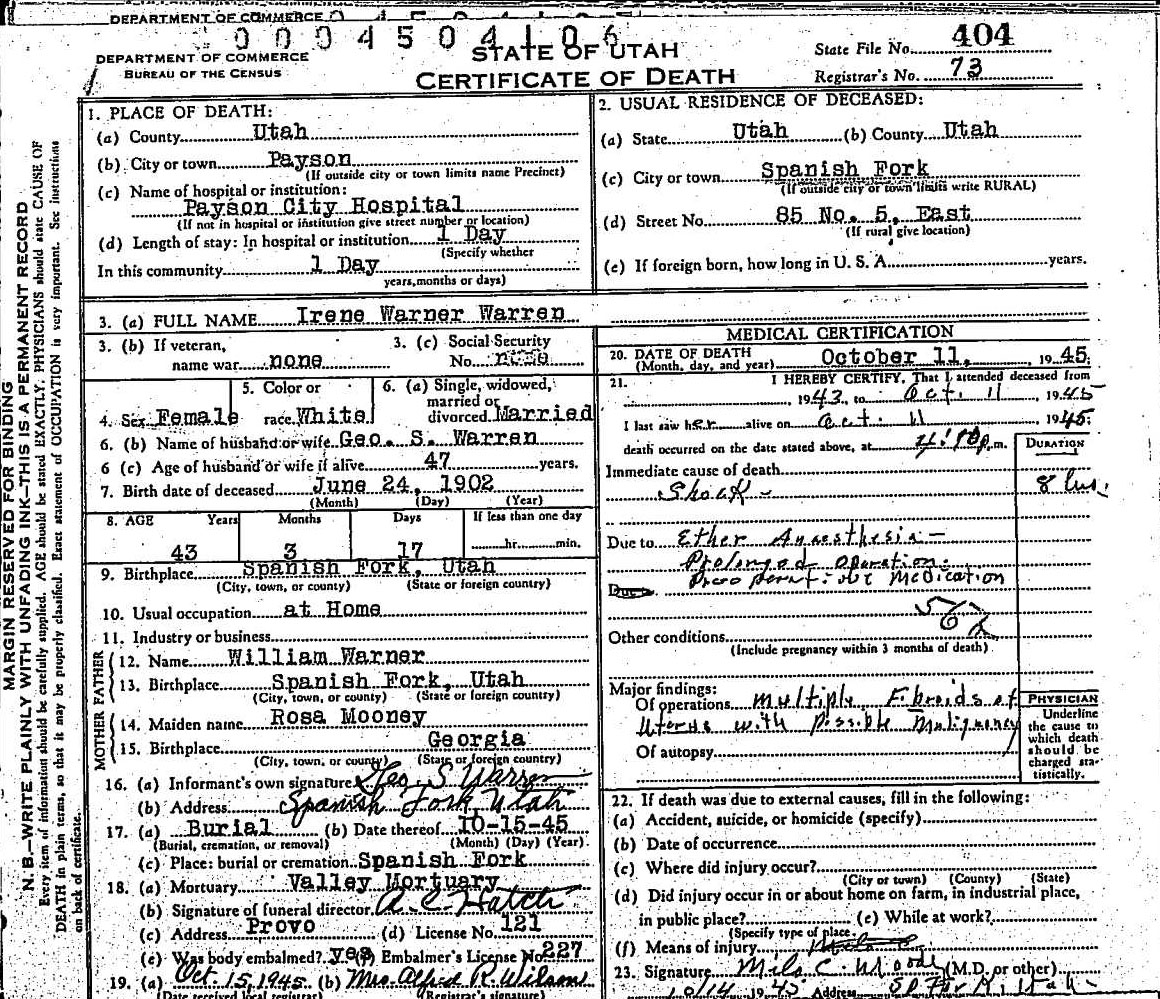 DEPARTMENT OF COMMERCE
0 0 0 4 5 0 4 1 0 6
DEPARTMENT OF COMMERCE
BUREAU OF THE CENSUS
STATE OF UTAH
CERTIFICATE OF DEATH
State File No. 404
Registrar's No. 73
MARGIN RESERVED FOR BINDING
N. B.—WRITE PLAINLY WITH UNFADING INK—THIS IS A PERMANENT RECORD
Every item of information should be carefully supplied. AGE should be stated EXACTLY. PHYSICIANS should state CAUSE OF
DEATH in plain terms, so that it may be properly classified. Exact statement of OCCUPATION is very important. See instructions
on back of certificate.
1. PLACE OF DEATH:
(a) County Utah
(b) City or town Payson
(If outside city or town limits name Precinct)
(c) Name of hospital or institution:
Payson City Hospital
(If not in hospital or institution give street number or location)
(d) Length of stay: In hospital or institution 1 Day
(Specify whether
In this community 1 Day
years, months or days)
2. USUAL RESIDENCE OF DECEASED:
(a) State Utah (b) County Utah
(c) City or town Spanish Fork
(If outside city or town limits write RURAL)
(d) Street No. 85 No. 5, East
(If rural give location)
(e) If foreign born, how long in U. S. A. years.
3. (a) FULL NAME Irene Warner Warren
3. (b) If veteran,
name war none
3. (c) Social Security
No. none
4. Sex Female
5. Color or
race White
6. (a) Single, widowed,
married or
divorced Married
6. (b) Name of husband or wife Geo. S. Warren
6 (c) Age of husband or wife if alive 47 years.
7. Birth date of deceased June 24, 1902
(Month) (Day) (Year)
8. AGE Years Months Days If less than one day
43 3 17 hr. min.
9. Birthplace Spanish Fork, Utah
(City, town, or county) (State or foreign country)
10. Usual occupation at Home
11. Industry or business
FATHER
12. Name William Warner
13. Birthplace Spanish Fork, Utah
(City, town, or county) (State or foreign country)
MOTHER
14. Maiden name Rosa Mooney
15. Birthplace Georgia
(City, town, or county) (State or foreign country)
16. (a) Informant's own signature Geo. S Warren
(b) Address Spanish Fork Utah
17. (a) Burial (b) Date thereof 10-15-45
(Burial, cremation, or removal) (Month) (Day) (Year)
(c) Place: burial or cremation Spanish Fork
18. (a) Mortuary Valley Mortuary
(b) Signature of funeral director A. C. Hatch
(c) Address Provo (d) License No. 121
(e) Was body embalmed? yes (f) Embalmer's License No. 227
19. (a) Oct. 15, 1945 (b) Mrs. Alfred R. Wilson
(Date received local registrar) (Registrar's signature)
MEDICAL CERTIFICATION
20. DATE OF DEATH October 11, 1945
(Month, day, and year)
21. I HEREBY CERTIFY, That I attended deceased from
1943, to Oct. 11 1945
I last saw her alive on Oct. 11 1945
death occurred on the date stated above, at p.m.
DURATION
Immediate cause of death
Shock - 8 hrs.
Due to Ether Anaesthesia —
Prolonged Operation.
Preoperative Medication
Due
Other conditions
(Include pregnancy within 3 months of death)
Major findings:
Of operations Multiple Fibroids of
Uterus with Possible Malignancy
Of autopsy
PHYSICIAN
Underline
the cause to
which death
should be
charged sta-
tistically.
22. If death was due to external causes, fill in the following:
(a) Accident, suicide, or homicide (specify)
(b) Date of occurrence
(c) Where did injury occur?
(City or town) (County) (State)
(d) Did injury occur in or about home on farm, in industrial place,
in public place? (e) While at work?
(Specify type of place
(f) Means of injury
23. Signature Milo C. Moody (M.D. or other)
10/14 1945 Address Sp Fork Utah